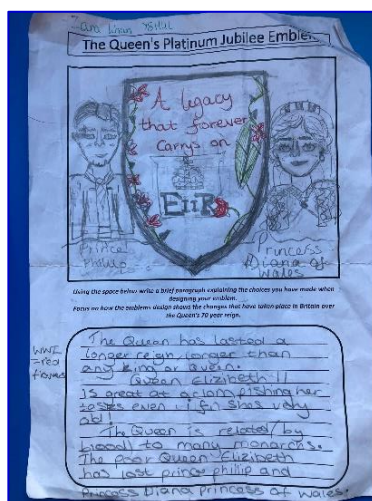 The Queen's Platinum Jubilee Emblem
A legacy
that forever
Carrys on
EIIR
Prince
Philip
Princess
Diana of
Wales
Using the space below write a brief paragraph explaining the choices you have made when
designing your emblem.
Focus on how the emblems design shows the changes that have taken place in Britain over
the Queen's 70 year reign.
WW1
=red
flowers
The Queen has lasted a
longer reign longer than
any king or Queen.
Queen Elizibeth II
is great at acomplishing her
even if shes very
old!
The Queen is related by
blood to many monarchs.
The poor Queen Elizibeth
has lost prince phillip and
Princess Diana Princess of Wales.